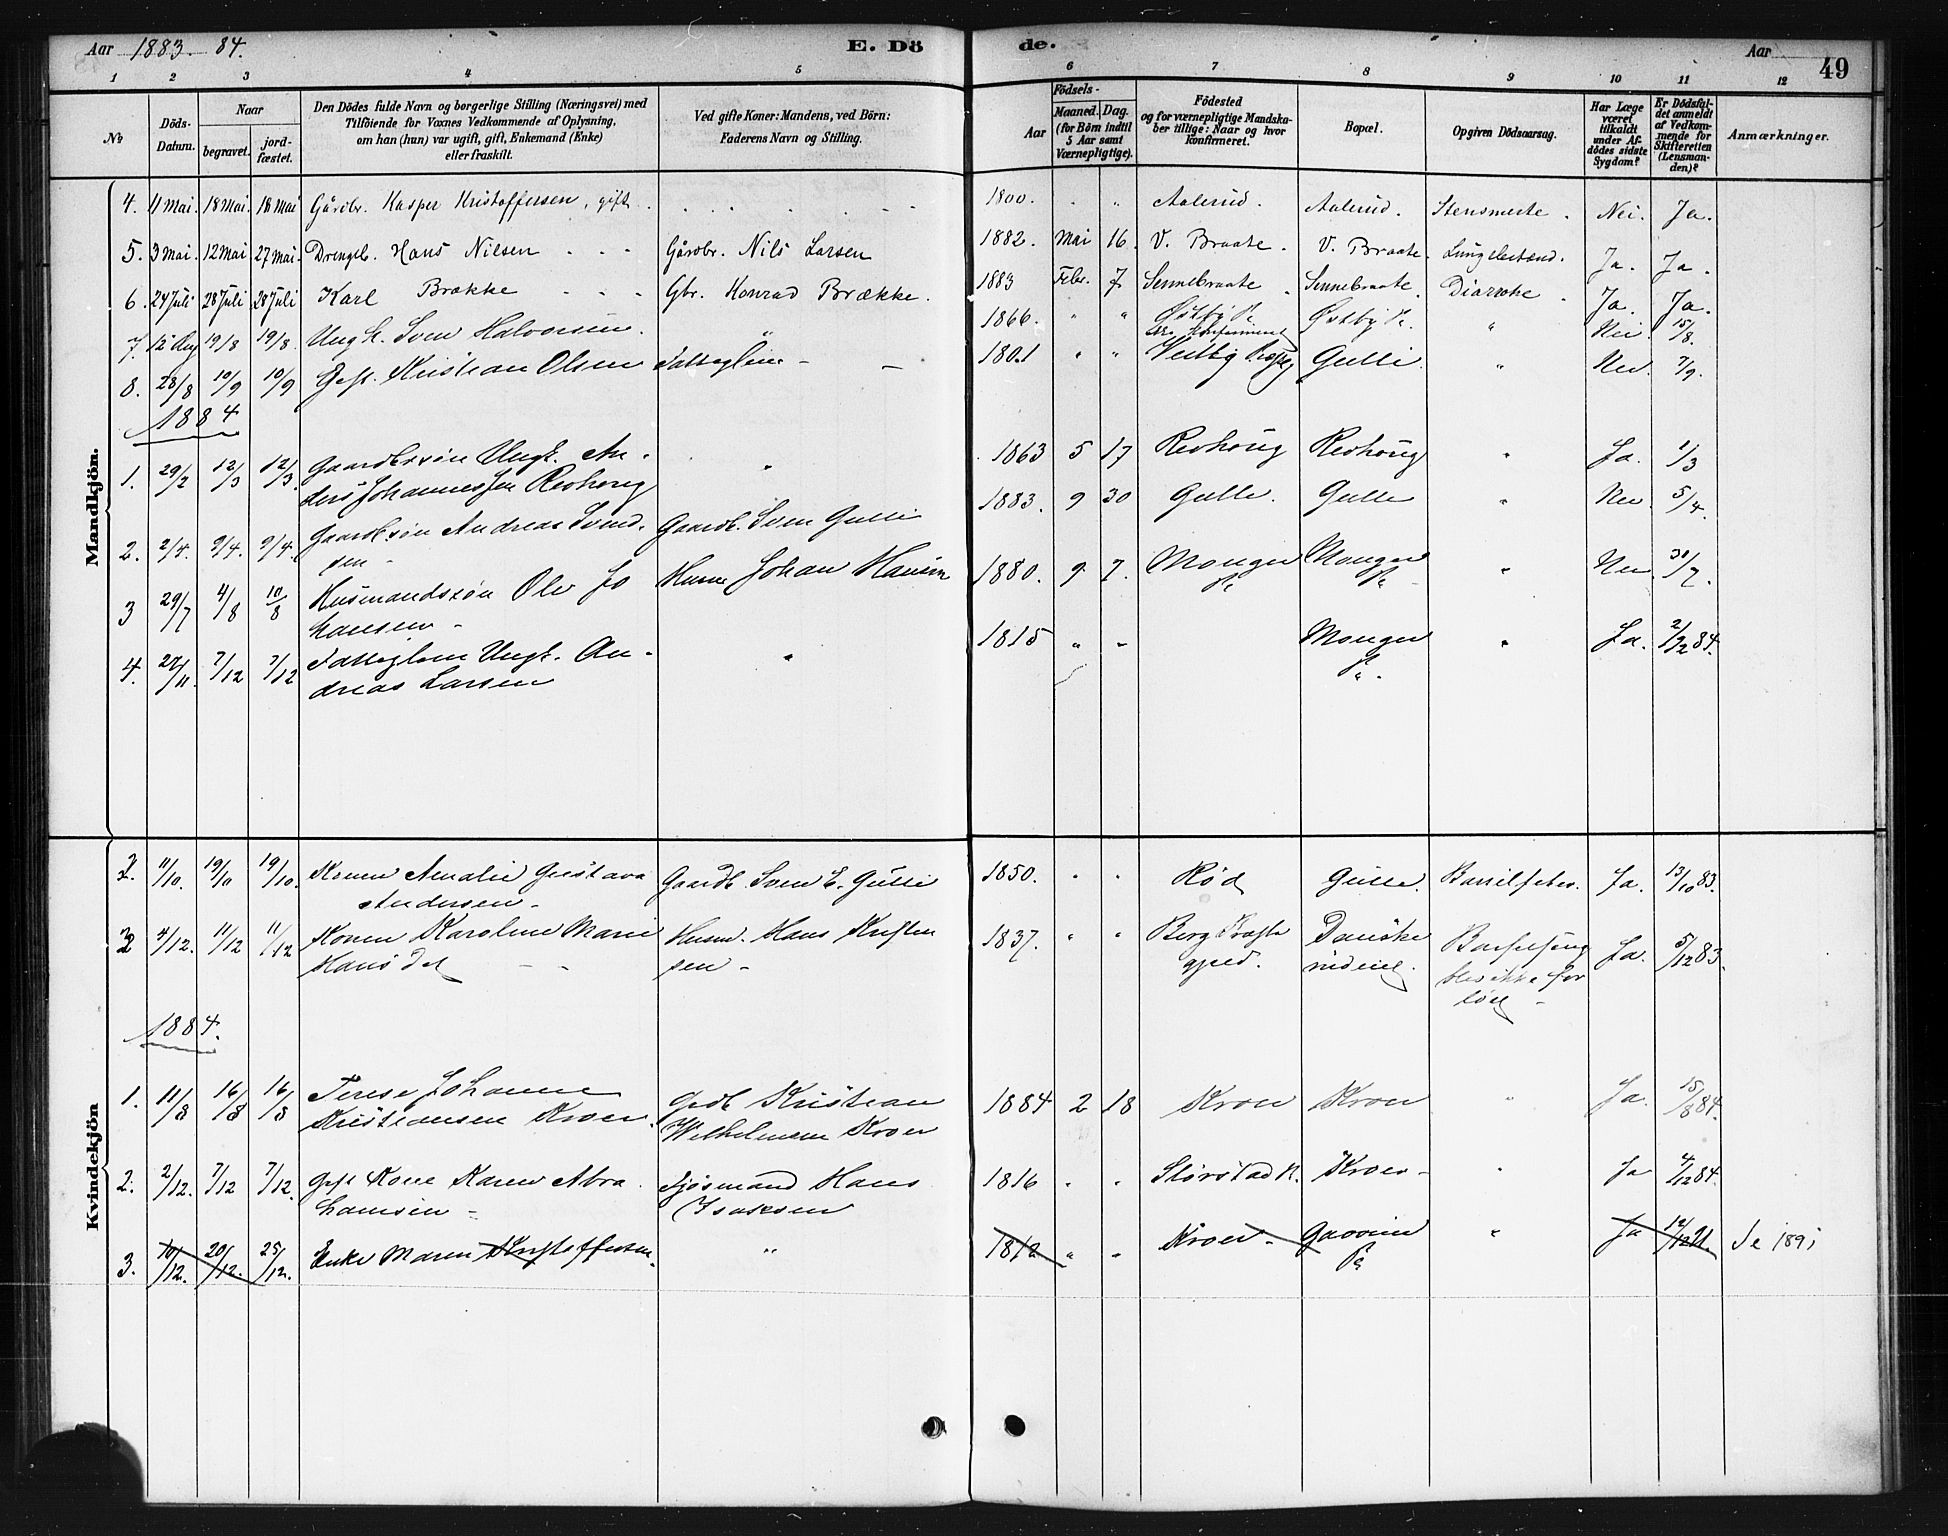 Aar 1883. 84.
E. Dö de.
Aar
49
1 2 3 4 5 6 7 8 9 10 11 12
№
Döds-Datum.
Naar
begravet.
jord-fæstet.
Den Dödes fulde Navn og borgerlige Stilling (Næringsvei) med
Tilföiende for Voxnes Vedkommende af Oplysning,
om han (hun) var ugift, gift, Enkemand (Enke)
eller fraskilt.
Ved gifte Koner: Mandens, ved Börn:
Faderens Navn og Stilling.
Födsels-
Aar
Maaned. Dag.
(for Börn indtil
5 Aar samt
Værnepligtige).
Födested
og for værnepligtige Mandska-
ber tillige: Naar og hvor
konfirmeret.
Bopæl.
Opgiven Dödsaarsag.
Har Læge
været
tilkaldt
under Af-
dödes sidste
Sygdom?
Er Dödsfal-
det anmeldt
af Vedkom-
mende for
Skifteretten
(Lensman-
den)?
Anmærkninger.
Mandkjön.
4. 11 Mai. 18 Mai. 18 Mai Gårdbr. Kasper Kristoffersen, gift. 1800. " Aalerud. Aalerud. Stensmerte. Nei. Ja.
5. 3 Mai. 12 Mai 27 Mai. Drengeb. Hans Nilsen - - - Gårdbr. Nils Larsen 1882. Mai 16. V. Braate. V. Braate. Lungebetænd. Ja. Ja.
6. 24 Juli 28 Juli 28 Juli Karl Brække - - - Gbr. Konrad Brække. 1883 Febr. 7 Sennebraate. Sennebraate. Diarrohe. Ja. Ja.
7. 12 Aug 19/8 19/8. Ungk. Sven Halvorsen. " 1866. " " Østby Østby " Nei. 15/8.
8. 28/8 10/9 10/9 Gift. Kristian Olsen Fattiglem - 1801 " " Gulli. " Nei. 7/9.
1884
1. 29/2 12/3 12/3. Gaardbrsön Ungk. An-
ders Johannessen Revhoug " 1863 5 17 Revhoug Revhoug " Ja. 1/3
2. 2/4. 9/4. 9/4. Gaardbrsön Andreas Svend-
sen - Gaardb. Sven Gulli 1883. 9 30 Gulle. Gulle " Nei 5/4.
3 29/7 4/8 10/8 Husmandssön Ole Jo
hansen - Husm Johan Hansen 1880. 9 7. Monger Monger " Nei 30/7.
4. 27/11. 7/12 7/12 Fattiglem Ungk. An-
dreas Larsen " 1815 " " Monger " Ja. 2/12 84.
Kvindekjön
2. 11/10. 19/10 19/10. Konen Amalie Gustava
Andersen - Gaardb. Sven E. Gulli 1850. " " Rød Gulle. Barselfeber. Ja. 13/10 83.
3 4/12. 11/12 11/12 Konen Karoline Marie
Hansdt - - Husm. Hans Kristen
sen - 1837. " " Berg Præste
gjeld. Danske
rudeie. Barselseng
blev ikke for
löst - Ja. 5/12 83.
1884.
1. 11/8 16/8 16/8 Terese Johanne
Kristiansen Kroer. Grdb Kristian
Wilhelmsen Kroer 1884 2 18 Kroer Kroer " Ja. 15/8 84.
2. 2/12. 7/12 7/12. Gift Kone Karen Abra
hamsen - Sjösmand Hans
Isaksen 1816 " " Storstad Kroer - " Ja 4/12 84.
3. 10/12. 20/12. 25/12. Enke Maren Kristoffersen. " 1812 " " Kroer. Gaovim " Ja 12/12 91. Se 1891